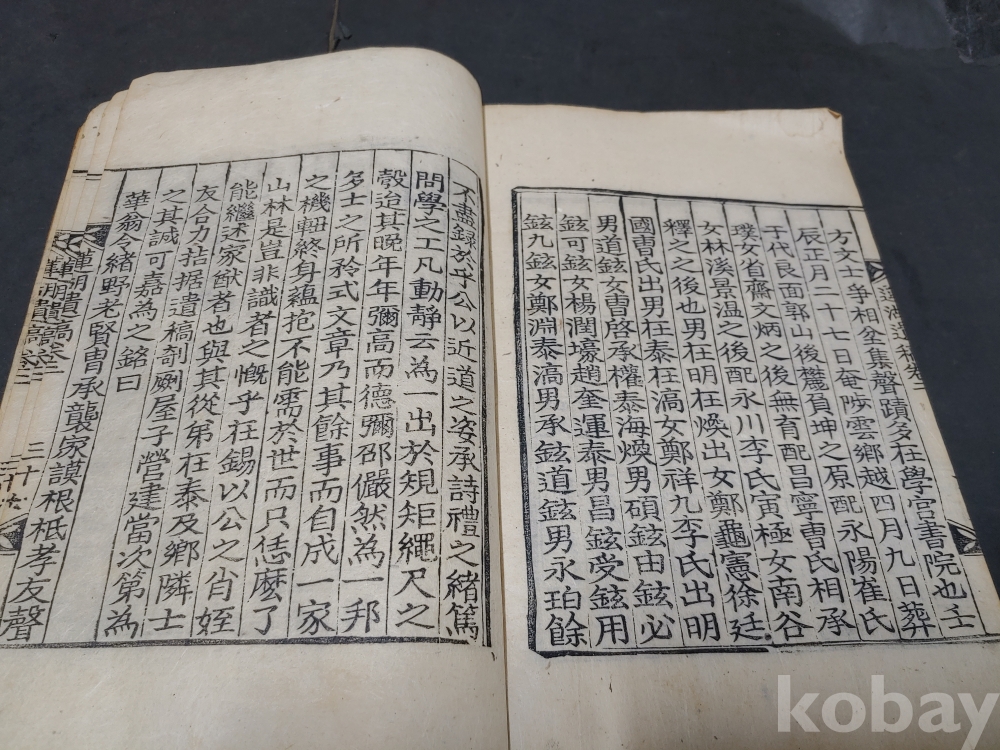 方文士爭相坌集聲蹟多在學宮書院也壬
辰正月二十七日奄陟雲鄉越四月九日葬
于代良面郭山後麓負坤之原配永陽崔氏
璞女省齋文炳之後無育配昌寧曺氏相承
女林溪景温之後配永川李氏寅極女南谷
釋之之後也男在明在煥出女鄭龜憲徐廷
國曺氏出男在泰在滈女鄭祥九李氏出明
男道鉉女曺啓承權泰海煥男碩鉉由鉉必
鉉可鉉女楊潤壕趙奎運泰男昌鉉受鉉用
鉉九鉉女鄭淵泰滈男承鉉道鉉男永珀餘
不盡録於乎公以近道之姿承詩禮之緒篤
問學之工凡動靜云為一出於規矩繩尺之
彀迨其晚年年彌高而德彌邵儼然為一邦
多士之所矜式文章乃其餘事而自成一家
之機軸終身蘊抱不能需於世而只恁麽了
山林是豈非識者之慨乎在錫以公之肖姪
能繼述家猷者也與其從弟在泰及鄉隣士
友合力拮据遺稿剞劂屋子營建當次第為
之其誠可嘉為之銘曰
華翁令緒野老賢胄承襲家謨根柢孝友聲
蓮湖遺稿卷之二
三十
kobay